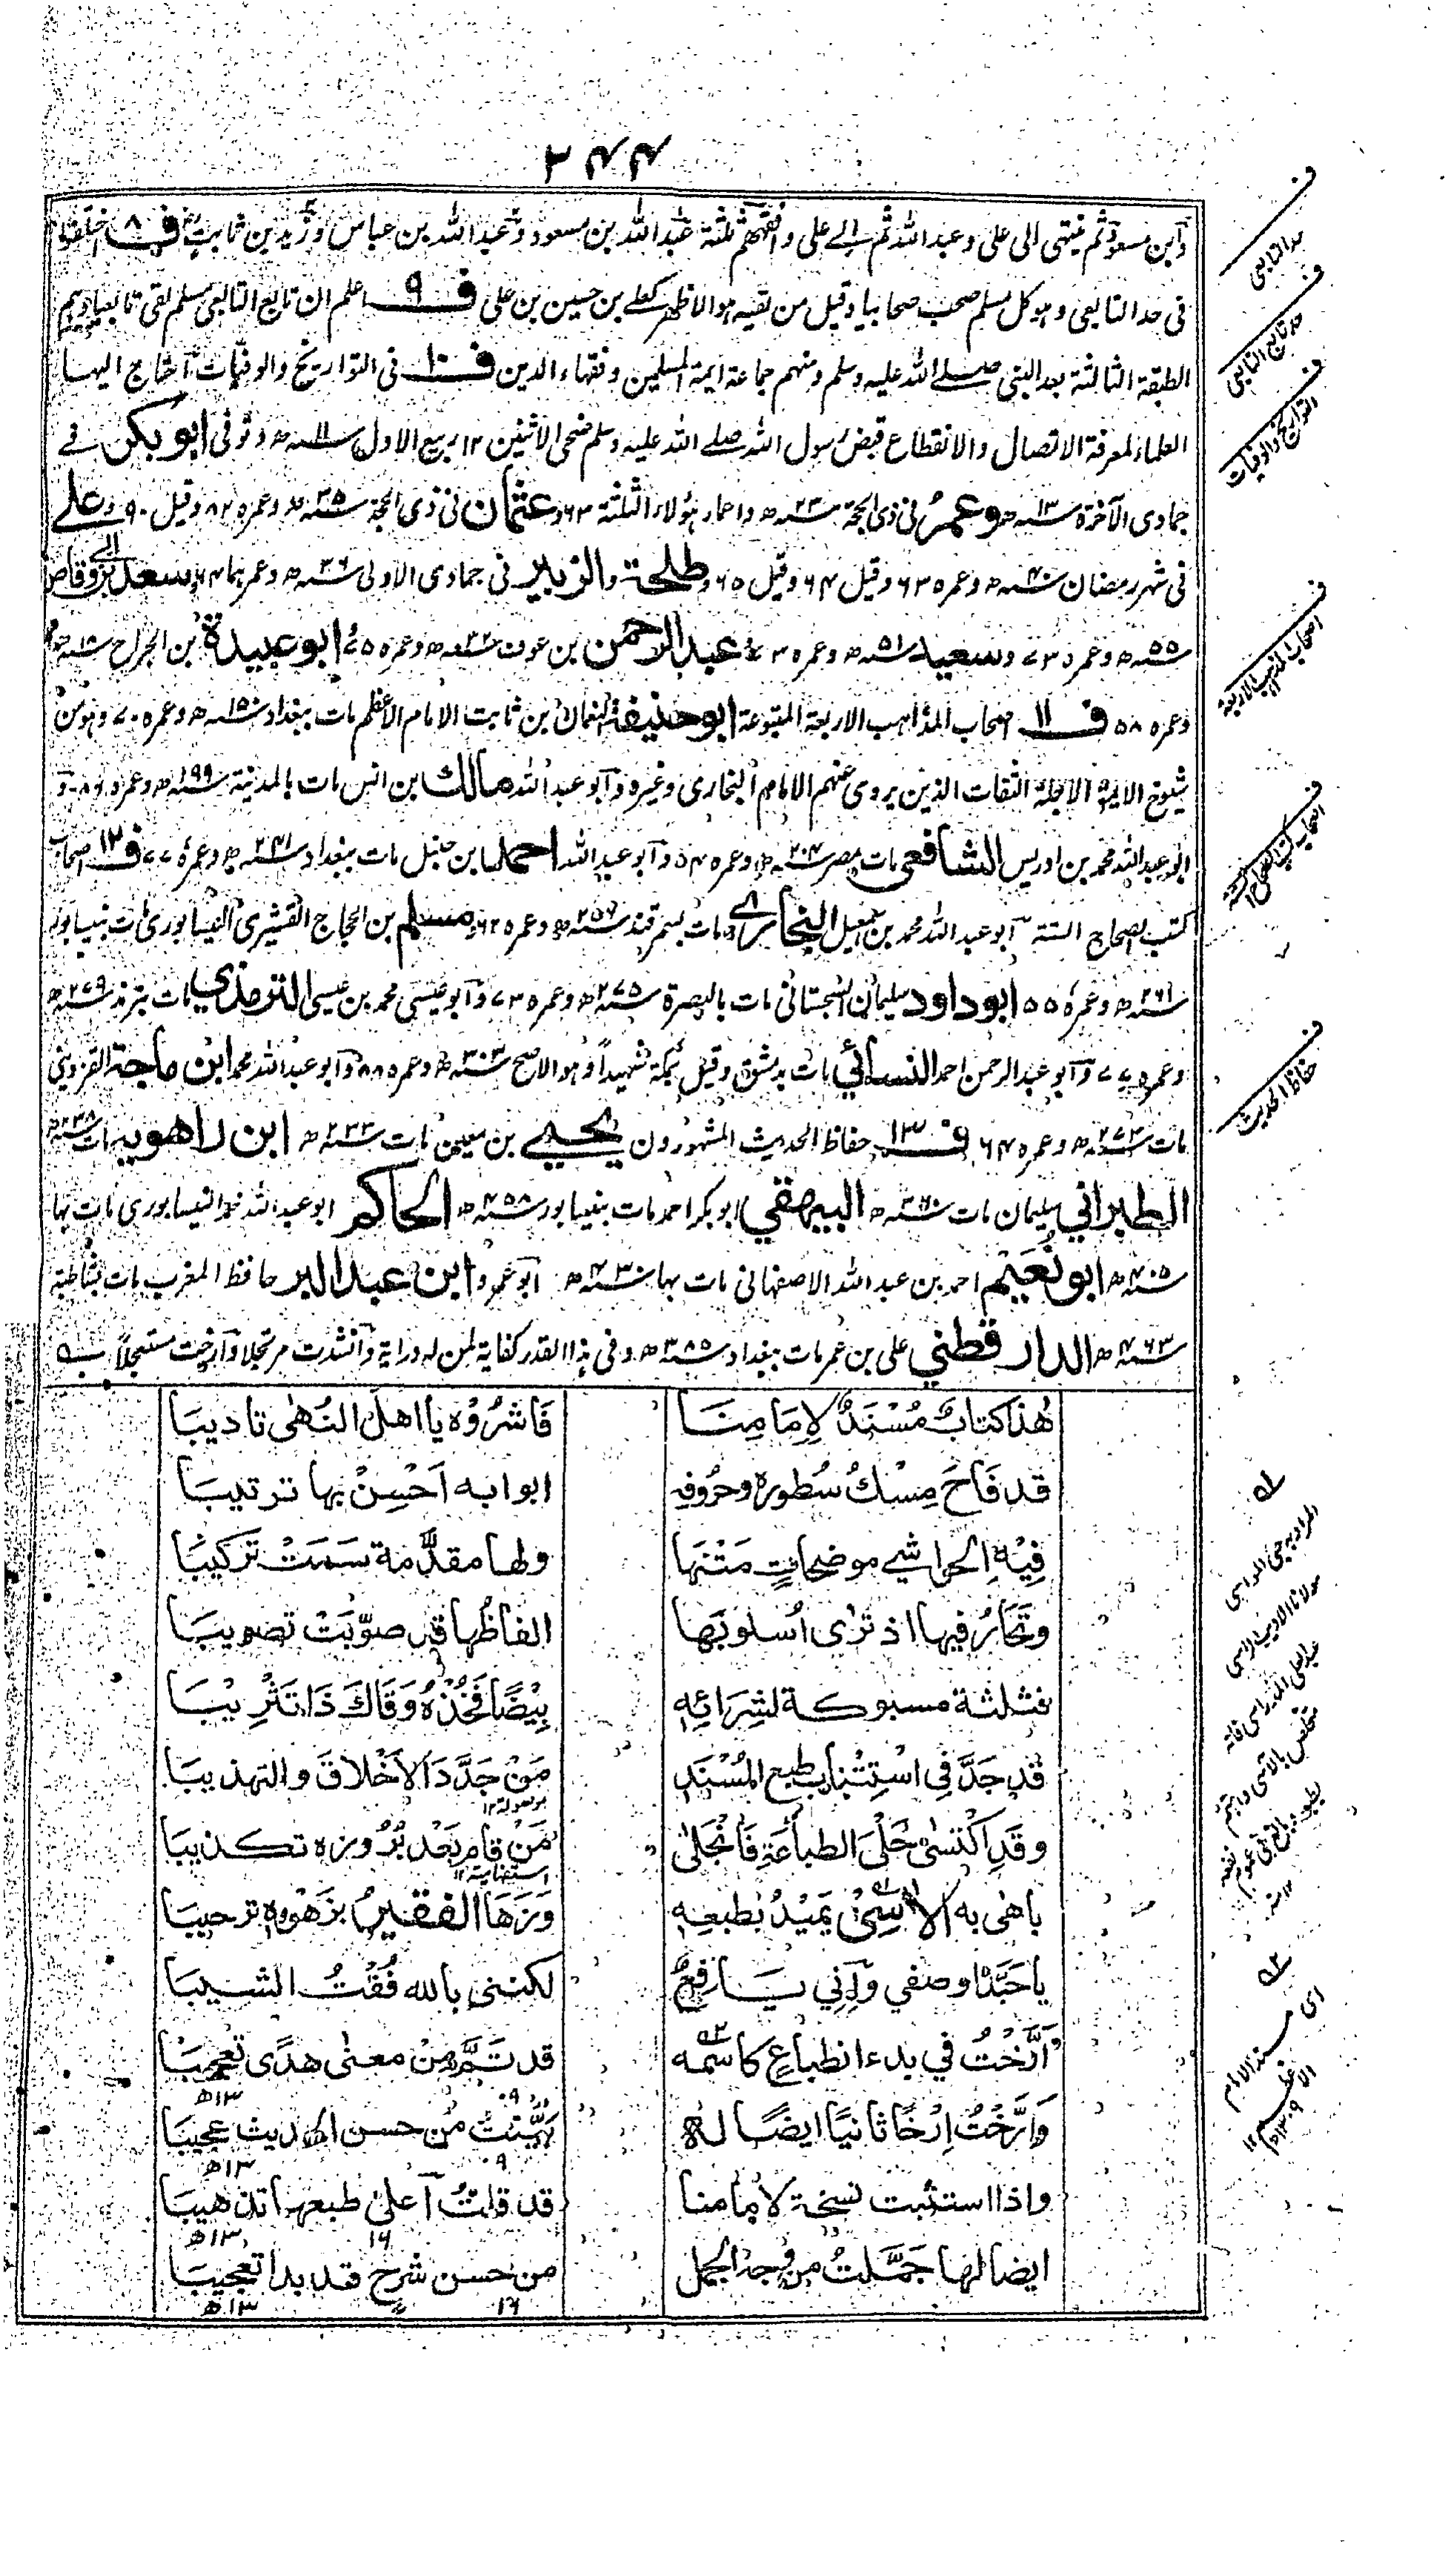 ۲۴۴
وابن مسعود ثم ینتهی الی علی وعبد الله ثم الے علی وافقههم ثلثة عبد الله بن مسعود وعبد الله بن عباس وزید بن ثابت ف ۸ اختلفوا
فی حد التابعی وهو کل مسلم صحب صحابیا وقیل من لقیه هو الاظهر کعلے بن حسین بن علی ف ۹ اعلم ان تابع التابعی مسلم لقی تابعیا وهم
الطبقة الثالثة بعد النبی صلے الله علیه وسلم ومنهم جماعة ایمة المسلمین وفقهاء الدین ف ۱۰ فی التواریخ والوفیات احتاج الیها
العلماء لمعرفة الاتصال والانقطاع قبض رسول الله صلے الله علیه وسلم ضحی الاثنین ۱۲ ربیع الاول سنه ۱۱ ه وتوفی ابو بکر فے
جمادی الآخرة سنه ۱۳ ه وعمر فی ذی الحجة سنه ۲۳ ه واعمار هؤلاء الثلثة ۶۳ وعثمان فی ذی الحجة سنه ۳۵ ه وعمره ۸۲ وقیل ۹۰ وعلے
فی شهر رمضان سنه ۴۰ ه وعمره ۶۳ وقیل ۶۴ وقیل ۶۵ وطلحة والزبیر فی جمادی الاولی سنه ۳۶ ه وعمرهما ۶۴ وسعد بن ابی وقاص
سنه ۵۵ ه وعمره ۷۳ وسعید سنه ۵۱ ه وعمره ۷۳ وعبد الرحمن بن عوف سنه ۳۲ ه وعمره ۷۵ وابو عبیدة بن الجراح سنه ۱۸ ه
وعمره ۵۸ ف ۱۱ اصحاب المذاهب الاربعة المتبوعة ابو حنیفة النعمان بن ثابت الامام الاعظم مات ببغداد سنه ۱۵۰ ه وعمره ۷۰ وهو من
شیوخ الایمة الاجلة الثقات الذین یروی عنهم الامام البخاری وغیره وابو عبد الله مالك ابن انس مات بالمدینة سنه ۱۹۹ ه وعمره ۸۶ و
ابو عبد الله محمد بن ادریس الشافعی مات بمصر سنه ۲۰۴ ه وعمره ۵۴ وابو عبد الله احمد ابن حنبل مات ببغداد سنه ۲۴۱ ه وعمره ۷۷ ف ۱۲ اصحاب
کتب الصحاح الستة ابو عبد الله محمد بن اسمعیل البخارے مات بسمرقند سنه ۲۵۶ ه وعمره ۶۲ مسلم بن الحجاج القشیری النیسابوری مات بنیسابور
سنه ۲۶۱ ه وعمره ۵۵ ابو داود سلیمان السجستانی مات بالبصرة سنه ۲۷۵ ه وعمره ۷۳ وابو عیسی محمد بن عیسی الترمذي مات بترمذ سنه ۲۷۹ ه
وعمره ۷۷ وابو عبد الرحمن احمد النسائي مات بدمشق وقیل بمکة شهیدا وهو الاصح سنه ۳۰۳ ه وعمره ۸۸ وابو عبد الله محمد ابن ماجة القزوینی
مات سنه ۲۷۳ ه وعمره ۶۴ ف ۱۳ حفاظ الحدیث المشهورون یحیے بن معین مات سنه ۲۳۳ ه ابن راهویه مات سنه ۲۳۸ ه
الطبراني سلیمان مات سنه ۳۶۰ ه البیهقي ابو بکر احمد مات بنیسابور سنه ۴۵۸ ه الحاکم ابو عبد الله محمد النیسابوری مات بها
سنه ۴۰۵ ه ابو نُعَیم احمد بن عبد الله الاصفهانی مات بها سنه ۴۳۰ ه ابو عمرو ابن عبد البر حافظ المغرب مات بشاطبة
سنه ۴۶۳ ه الدار قطني علی بن عمر مات ببغداد سنه ۳۸۵ ه وفی هذا القدر کفایة لمن له درایة وانشدت مرتجلا وارخت مستعجلاً
هٰذا كتابٌ مُسْنَدٌ لِاِمَامِنَا فَاشرُوْه يا اهلَ النُهٰى تاديبَا
قد فَاحَ مِسْكُ سُطوره وحُرُوفِه ابوابه اَحْسِنْ بها ترتيبَا
فِيْهِ الحواشے موضحاتٍ مَتْنَهَا ولها مقدَّمة سَمَتْ تَركيبَا
وتَحَارُ فيها اذ تَرٰى اُسلوبَها الفاظُها قد صوّبَتْ تصويبَا
فثلثة مسبوكة لشِرَائِهٖ بِيْضًا فَخُذْهُ وَقَاكَ ذَا تَثْرِيْبَا
قد جَدَّ فِي اسْتِثْنابِ طبع المُسْنَدِ مَنْ جَدَّدَ الاَخْلاقَ والتهذيبَا
موصولة ۱۲
وقَدِ اكْتسٰى حُلَى الطباعَةِ فَانْجَلىٰ مَنْ قام بَعْد بُرُوزه تكذيبَا
استفهامیة ۱۲
باهٰى به الآسِيُّ يَمِيْدُ بطبعِهٖ وَزَهَا الفقيرُ بزَهْوهٖ ترحيبَا
يا حَبَّذا وصفي وَاِنِّي يَافِعٌ لكننى بالله فُقْتُ الشيبَا
اَرَّخْتُ في بدء انطباعٍ كاسمه قد تَمَّ مِنْ معنٰى هدًى تعجبَا
۹ ۱۳ ھ
وَاَرَّخْتُ اِرْخًا ثانيًا ايضًا له لايَّنتُ مُن حسن الحديث عجيبَا
۹ ۱۳ ھ
واذا استثبت نسخة لامامنا قد قلتُ اَعلىٰ طبعها تذهيبَا
۱۶ ۱۳ ھ
ايضا لها جَمَّلتُ من وجد الجمل من حسن شرح قد بدا تعجيبَا
۱۶ ۱۳ ھ
ف
حد التابعی
ف
حد تابع التابعی
ف
التواریخ والوفیات
ف
اصحاب المذاهب الاربعة
ف
اصحاب کتب الصحاح الستة
ف
حفاظ الحدیث
المراد به
مولانا
عبد العلی المدراسی فانه
متخلص بالآسی
ای
مسند الامام
الاعظم
۱۳۰۹ ه
۱۲